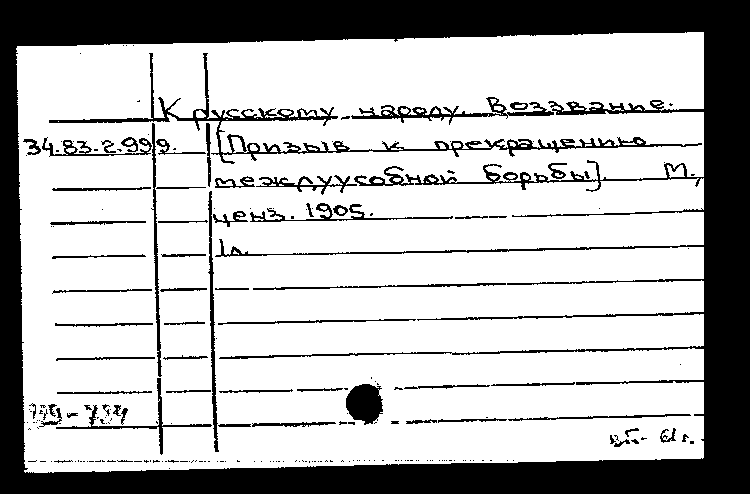 К русскому народу. Воззвание.
34.83.2.999. [Призыв к прекращению
междуусобной борьбы]. М.,
ценз. 1905.
1л.
-734
61 г.